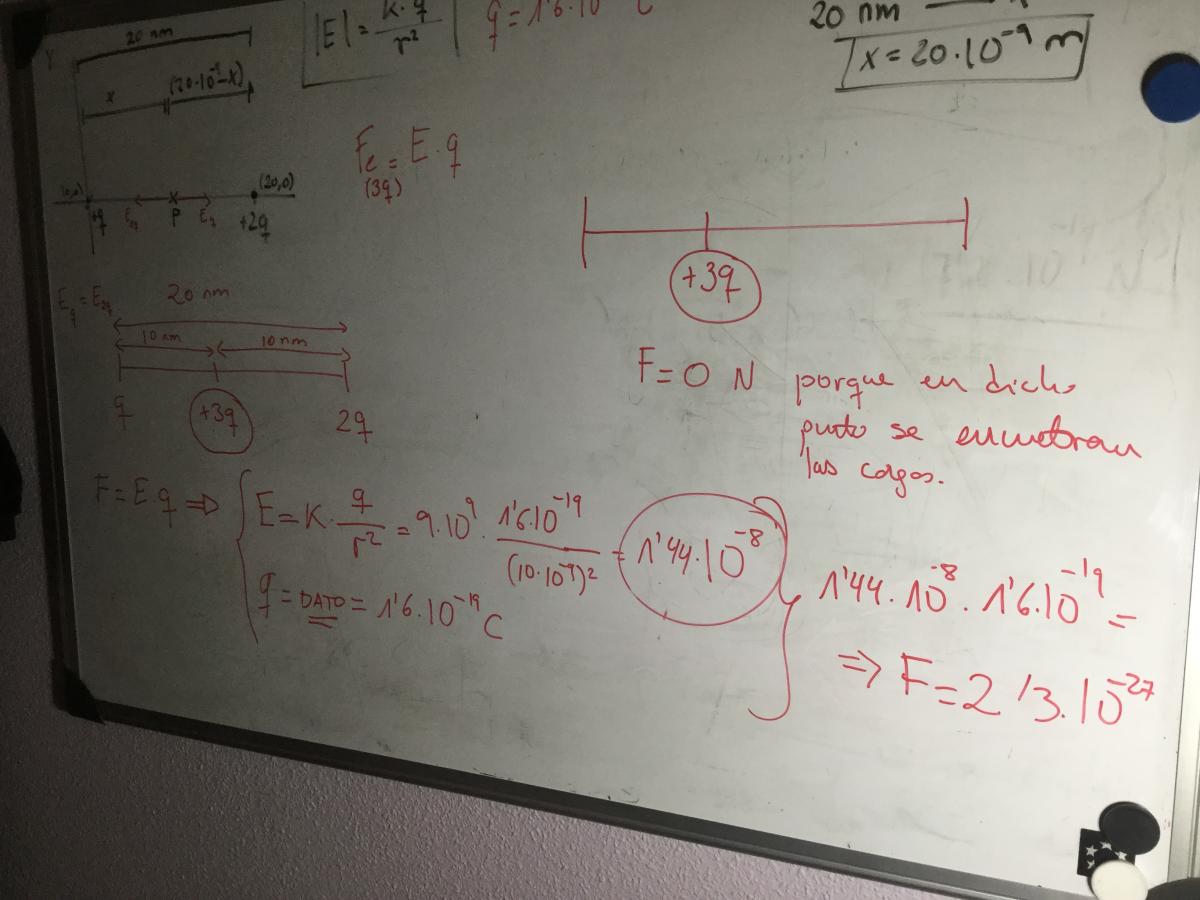 20 nm
|E| = K·q / r²
q = 1'6·10
20 nm
x = 20·10⁻⁹ m
x
(20·10⁻⁹-x)
Fe = E·q
(3q)
(0,0)
(20,0)
+q
P
+2q
20 nm
10 nm
10 nm
q
+3q
2q
+3q
F = 0 N porque en dicho
punto se encuentran
las cargas.
F = E·q ⇒
E = K· q / r² = 9·10⁹ · 1'6·10⁻¹⁹ / (10·10⁻⁹)² = 1'44·10⁻⁸
q = DATO = 1'6·10⁻¹⁹ C
1'44·10⁻⁸ · 1'6·10⁻¹⁹ =
⇒ F = 2'3·10⁻²⁷